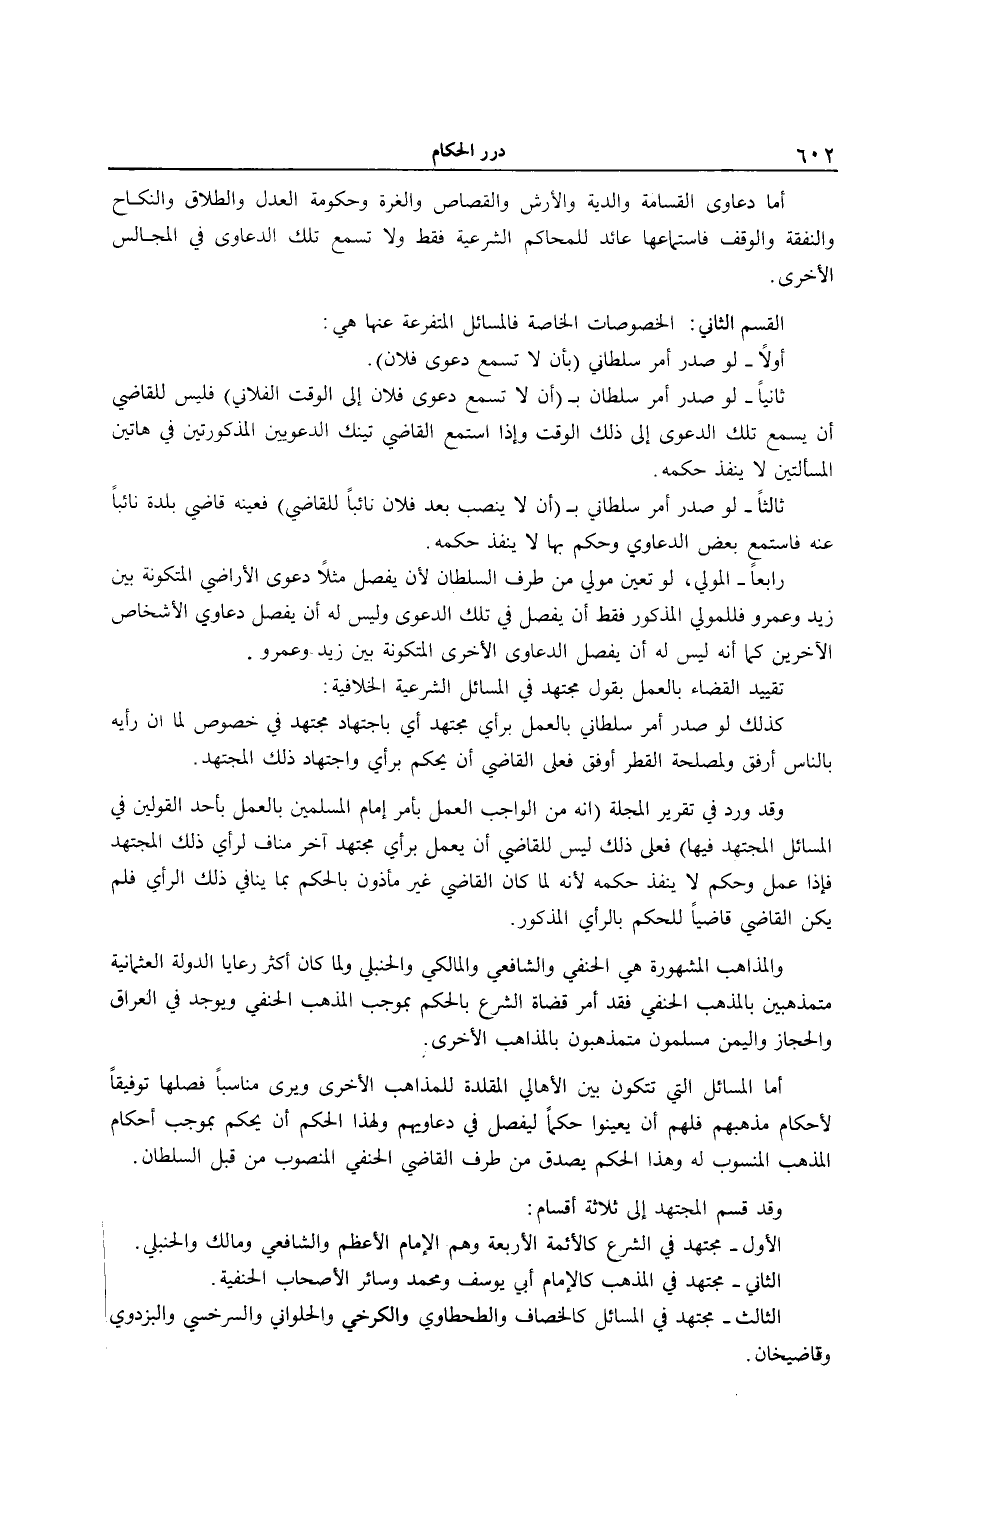 ٦٠٢ درر الحكام
أما دعاوى القسامة والدية والأرش والقصاص والغرة وحكومة العدل والطلاق والنكاح
والنفقة والوقف فاستماعها عائد للمحاكم الشرعية فقط ولا تسمع تلك الدعاوى في المجالس
الأخرى.
القسم الثاني: الخصوصات الخاصة فالمسائل المتفرعة عنها هي:
أولاً ـ لو صدر أمر سلطاني (بأن لا تسمع دعوى فلان).
ثانياً ـ لو صدر أمر سلطان بـ (أن لا تسمع دعوى فلان إلى الوقت الفلاني) فليس للقاضي
أن يسمع تلك الدعوى إلى ذلك الوقت وإذا استمع القاضي تينك الدعويين المذكورتين في هاتين
المسألتين لا ينفذ حكمه.
ثالثاً ـ لو صدر أمر سلطاني بـ (أن لا ينصب بعد فلان نائباً للقاضي) فعينه قاضي بلدة نائباً
عنه فاستمع بعض الدعاوي وحكم بها لا ينفذ حكمه.
رابعاً ـ المولي، لو تعين مولي من طرف السلطان لأن يفصل مثلاً دعوى الأراضي المتكونة بين
زيد وعمرو فللمولي المذكور فقط أن يفصل في تلك الدعوى وليس له أن يفصل دعاوي الأشخاص
الآخرين كما أنه ليس له أن يفصل الدعاوى الأخرى المتكونة بين زيد وعمرو .
تقييد القضاء بالعمل بقول مجتهد في المسائل الشرعية الخلافية:
كذلك لو صدر أمر سلطاني بالعمل برأي مجتهد أي باجتهاد مجتهد في خصوص لما ان رأيه
بالناس أرفق ولمصلحة القطر أوفق فعلى القاضي أن يحكم برأي واجتهاد ذلك المجتهد.
وقد ورد في تقرير المجلة (انه من الواجب العمل بأمر إمام المسلمين بالعمل بأحد القولين في
المسائل المجتهد فيها) فعلى ذلك ليس للقاضي أن يعمل برأي مجتهد آخر مناف لرأي ذلك المجتهد
فإذا عمل وحكم لا ينفذ حكمه لأنه لما كان القاضي غير مأذون بالحكم بما ينافي ذلك الرأي فلم
يكن القاضي قاضياً للحكم بالرأي المذكور.
والمذاهب المشهورة هي الحنفي والشافعي والمالكي والحنبلي ولما كان أكثر رعايا الدولة العثمانية
متمذهبين بالمذهب الحنفي فقد أمر قضاة الشرع بالحكم بموجب المذهب الحنفي ويوجد في العراق
والحجاز واليمن مسلمون متمذهبون بالمذاهب الأخرى.
أما المسائل التي تتكون بين الأهالي المقلدة للمذاهب الأخرى ويرى مناسباً فصلها توفيقاً
لأحكام مذهبهم فلهم أن يعينوا حكماً ليفصل في دعاويهم ولهذا الحكم أن يحكم بموجب أحكام
المذهب المنسوب له وهذا الحكم يصدق من طرف القاضي الحنفي المنصوب من قبل السلطان.
وقد قسم المجتهد إلى ثلاثة أقسام:
الأول ـ مجتهد في الشرع كالأئمة الأربعة وهم الإمام الأعظم والشافعي ومالك والحنبلي.
الثاني ـ مجتهد في المذهب كالإمام أبي يوسف ومحمد وسائر الأصحاب الحنفية.
الثالث ـ مجتهد في المسائل كالخصاف والطحطاوي والكرخي والحلواني والسرخسي والبزدوي
وقاضيخان.